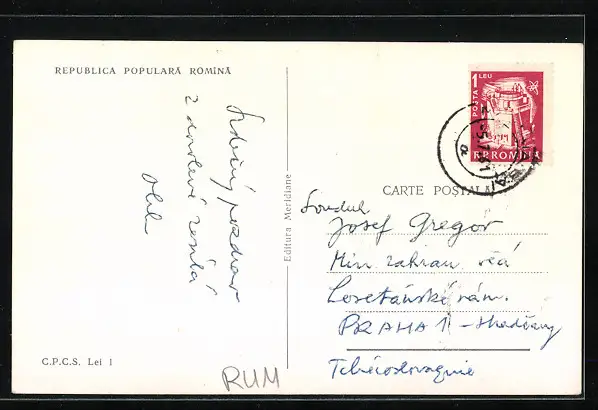 REPUBLICA POPULARĂ ROMÎNĂ
Srdečný pozdrav
z dovolené zasílá
C.P.C.S. Lei 1
Editura Meridiane
POSTA 1 LEU
R.P.ROMÎNĂ
CARTE POȘTALĂ
Soudruh
Josef Gregor
Min zahran. věcí
Loretánské nám.
PRAHA 1 - Hradčany
Tchécoslovaquie
RUM